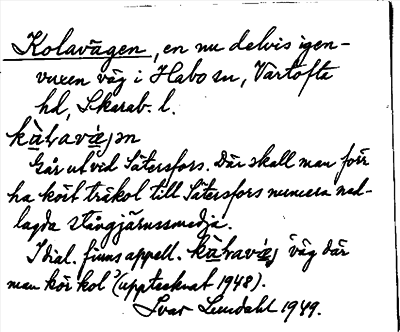 Kolavägen, en nu delvis igen-
vuxen väg i Habo sn, Vartofta
hd, Skarab. l.
kàl,avä́,ən
Går ut vid Sätersfors. Där skall man förr
ha kört träkol till Sätersfors numera ned-
lagda stångjärnssmedja.
I dial. finns appell. kàl,avä́,j "väg där
man kör kol" (upptecknat 1948).
Ivar Lundahl 1949.